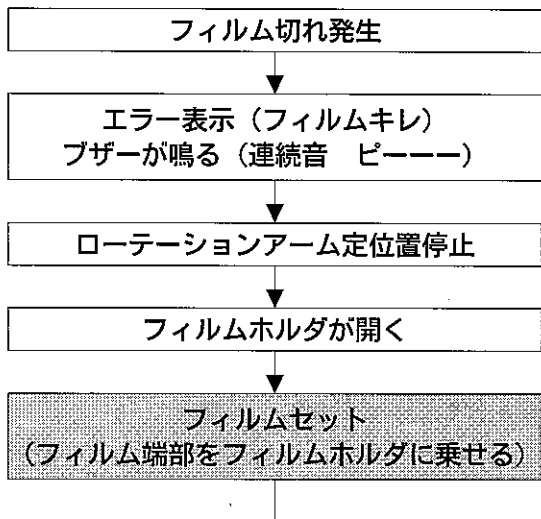 フィルム切れ発生
エラー表示（フィルムキレ）
ブザーが鳴る（連続音　ピーーー）
ローテーションアーム定位置停止
フィルムホルダが開く
フィルムセット
（フィルム端部をフィルムホルダに乗せる）